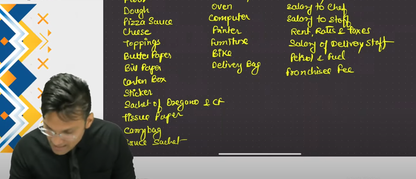 Dough
Pizza Sauce
Cheese
Toppings
Butter Paper
Bill Paper
Carton Box
Sticker
Sachet of Oregano & CF
Tissue Paper
Carrybag
Sauce Sachet
Oven
Computer
Printer
Furniture
Bike
Delivery Bag
Salary to Chef
Salary to Staff
Rent, Rates & Taxes
Salary of Delivery Staff
Petrol & Fuel
Franchisee Fee